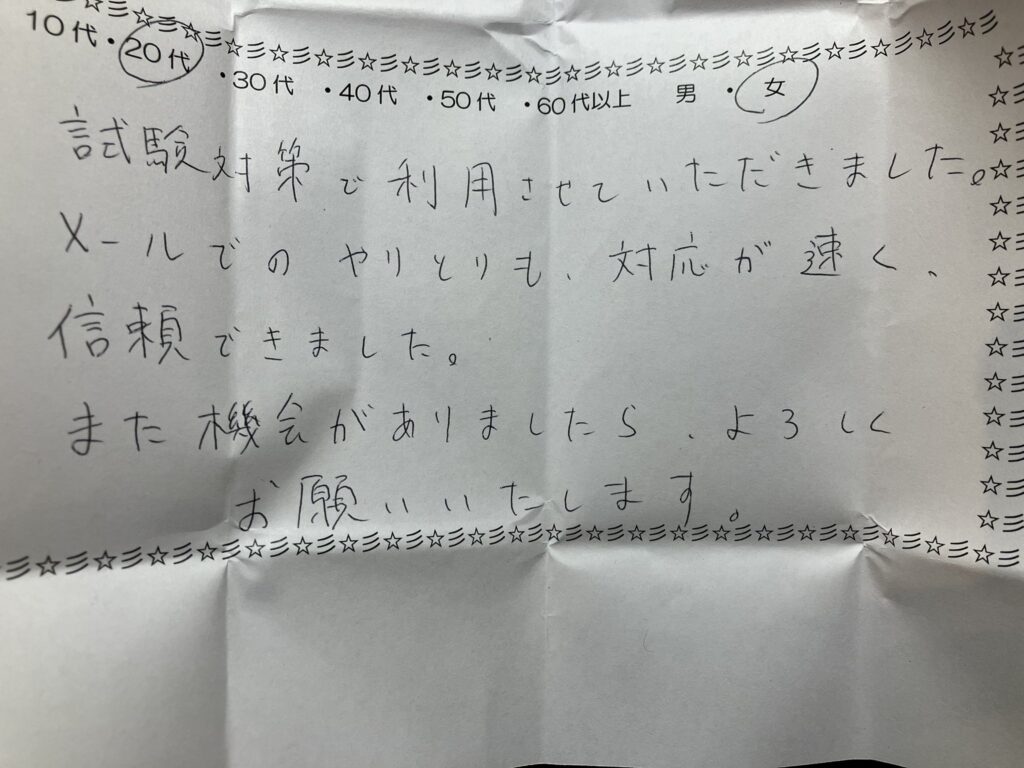 10代・20代・30代・40代・50代・60代以上　男・女
試験対策で利用させていただきました。
メールでのやりとりも、対応が速く、
信頼できました。
また機会がありましたら、よろしく
お願いいたします。